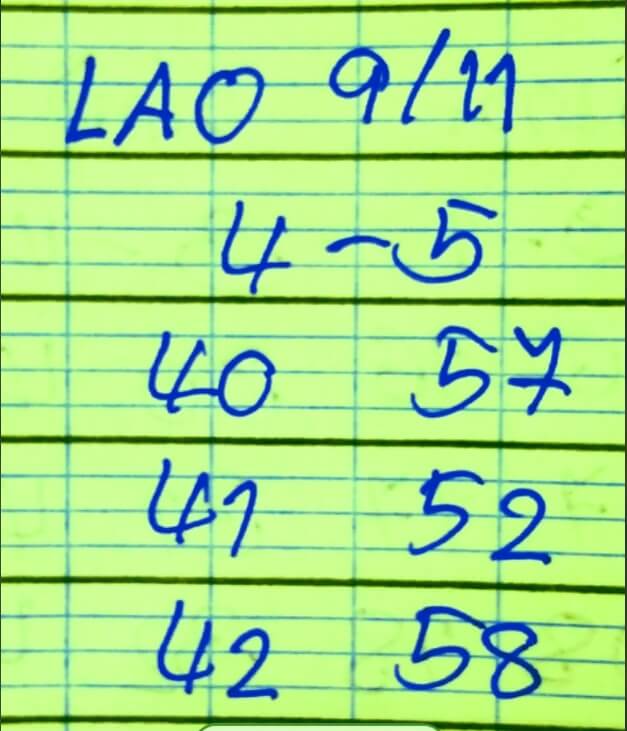 LAO 9/11
4-5
40 57
41 52
42 58